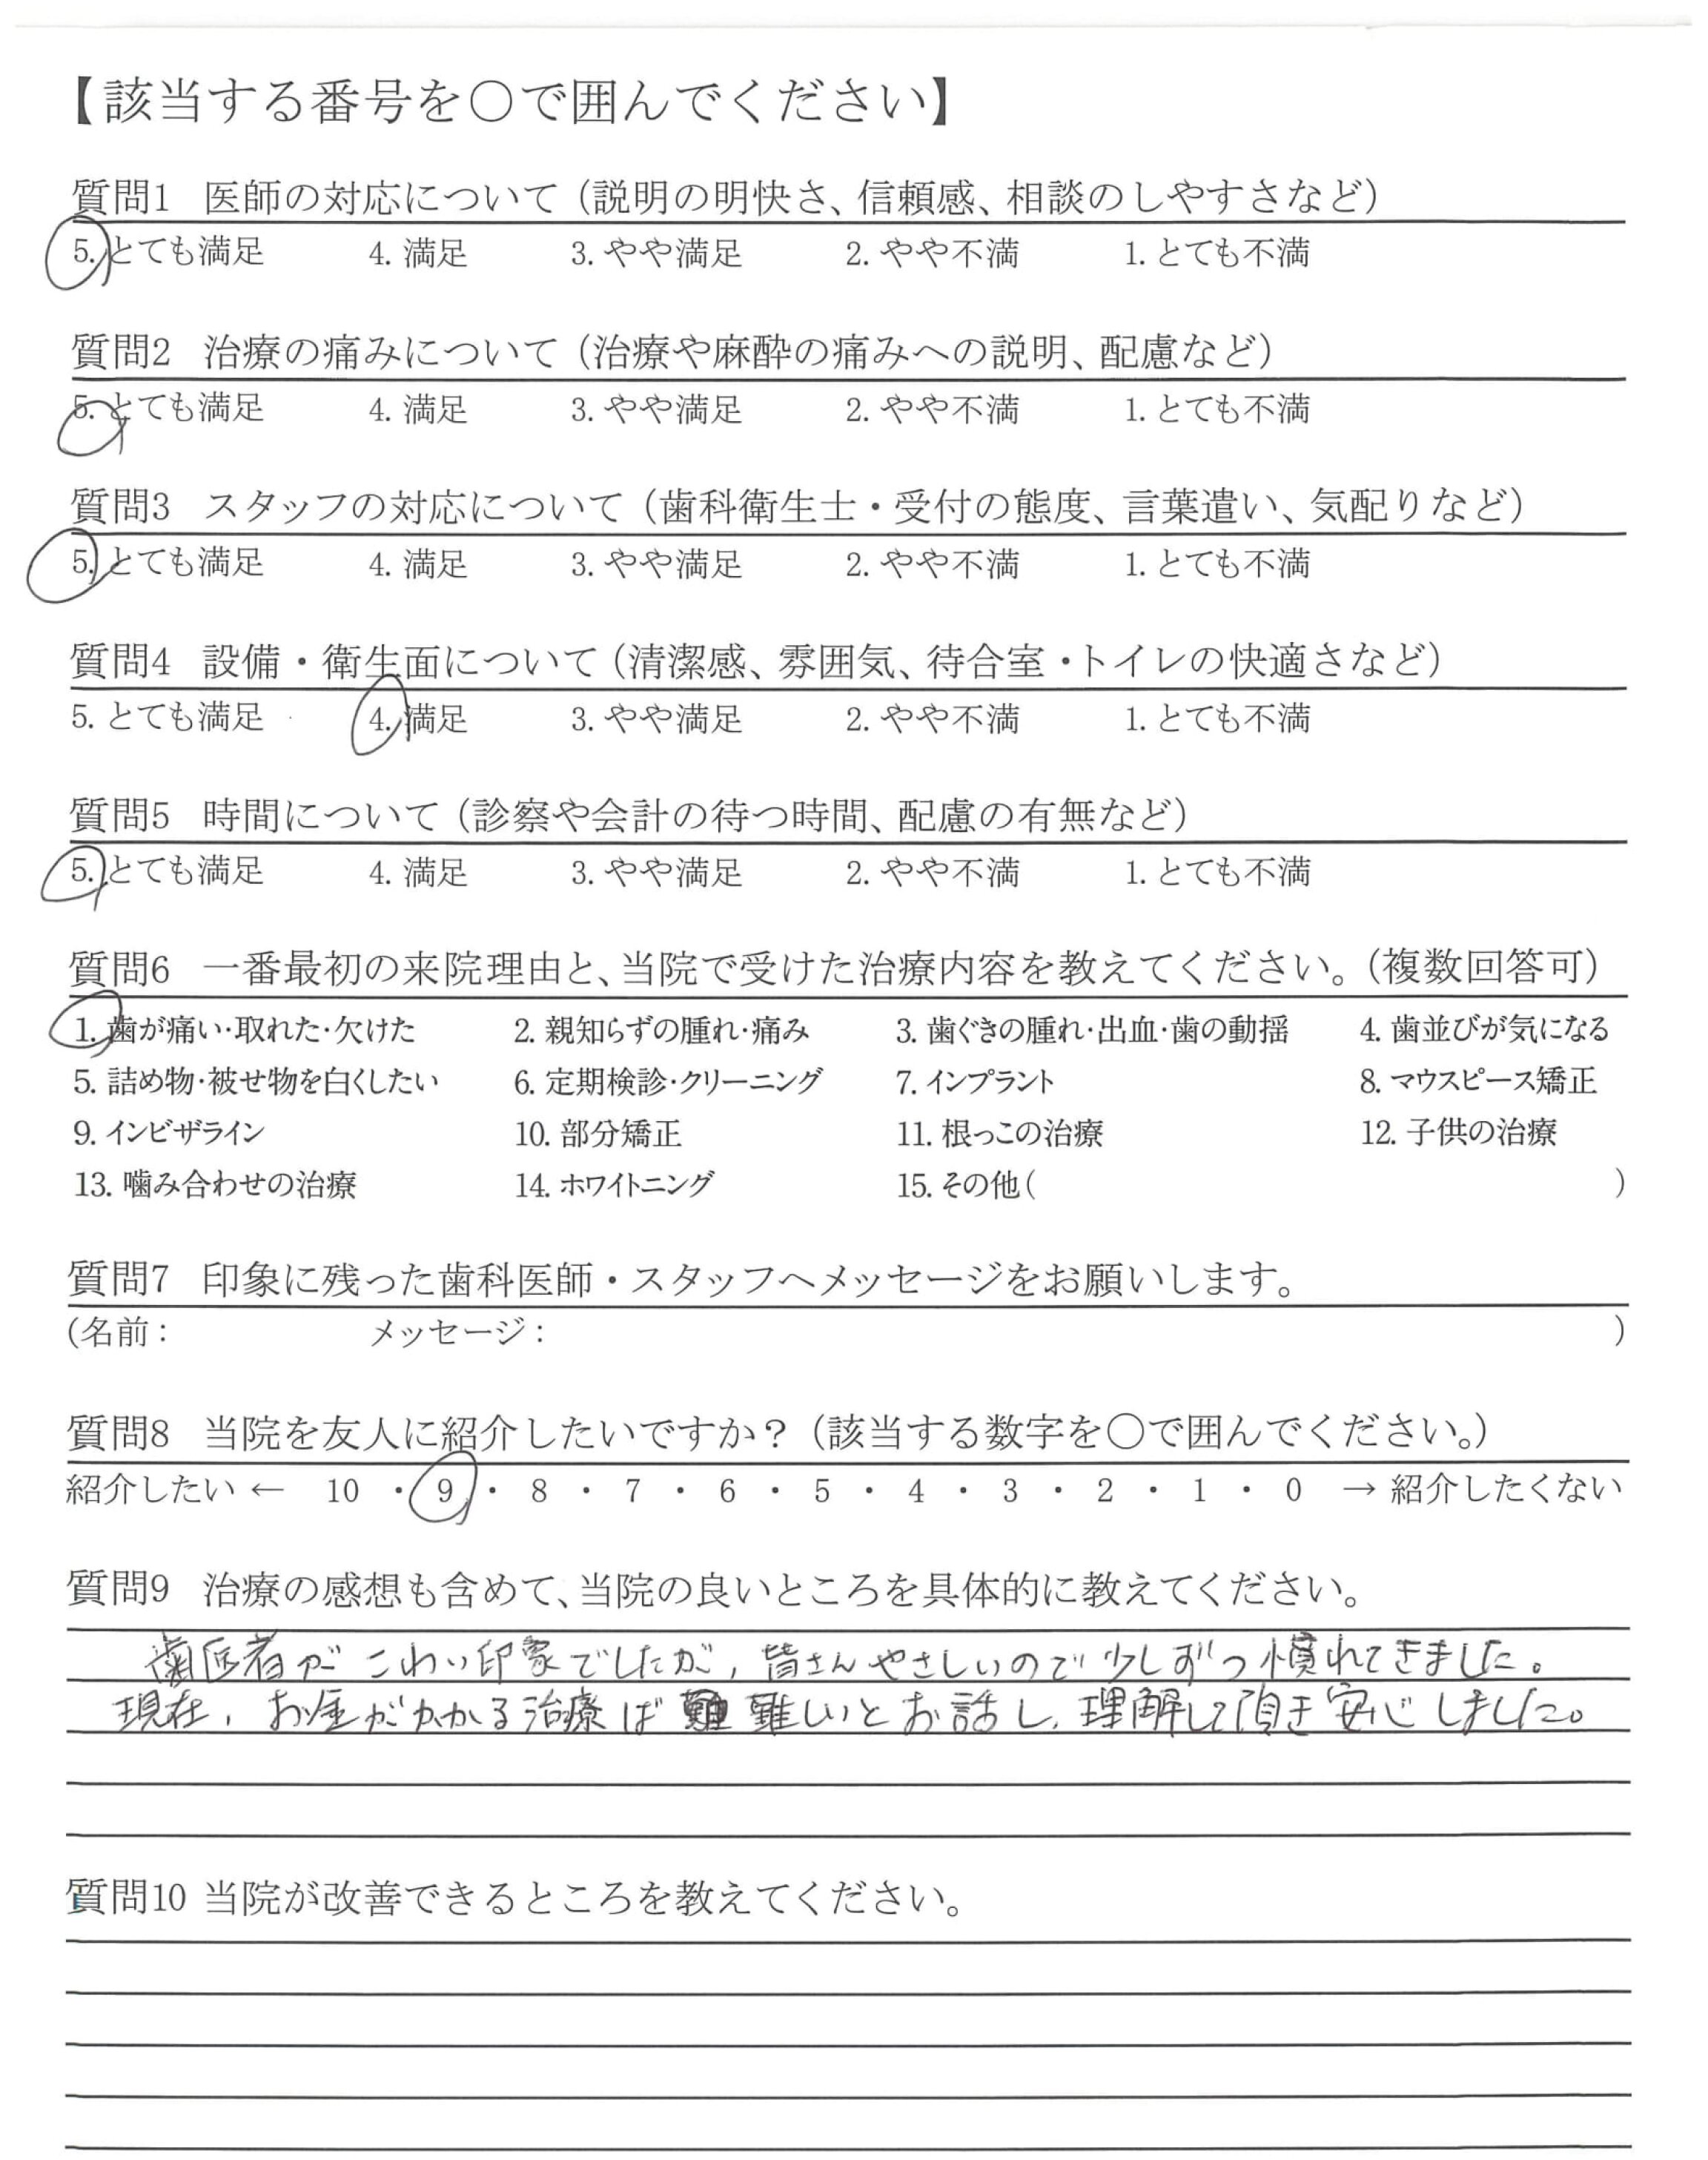 【該当する番号を○で囲んでください】
質問1 医師の対応について（説明の明快さ、信頼感、相談のしやすさなど）
5. とても満足 4. 満足 3. やや満足 2. やや不満 1. とても不満
質問2 治療の痛みについて（治療や麻酔の痛みへの説明、配慮など）
5. とても満足 4. 満足 3. やや満足 2. やや不満 1. とても不満
質問3 スタッフの対応について（歯科衛生士・受付の態度、言葉遣い、気配りなど）
5. とても満足 4. 満足 3. やや満足 2. やや不満 1. とても不満
質問4 設備・衛生面について（清潔感、雰囲気、待合室・トイレの快適さなど）
5. とても満足 4. 満足 3. やや満足 2. やや不満 1. とても不満
質問5 時間について（診察や会計の待つ時間、配慮の有無など）
5. とても満足 4. 満足 3. やや満足 2. やや不満 1. とても不満
質問6 一番最初の来院理由と、当院で受けた治療内容を教えてください。（複数回答可）
1. 歯が痛い・取れた・欠けた 2. 親知らずの腫れ・痛み 3. 歯ぐきの腫れ・出血・歯の動揺 4. 歯並びが気になる
5. 詰め物・被せ物を白くしたい 6. 定期検診・クリーニング 7. インプラント 8. マウスピース矯正
9. インビザライン 10. 部分矯正 11. 根っこの治療 12. 子供の治療
13. 噛み合わせの治療 14. ホワイトニング 15. その他（ ）
質問7 印象に残った歯科医師・スタッフへメッセージをお願いします。
（名前： メッセージ： ）
質問8 当院を友人に紹介したいですか？（該当する数字を○で囲んでください。）
紹介したい ← 10 ・ 9 ・ 8 ・ 7 ・ 6 ・ 5 ・ 4 ・ 3 ・ 2 ・ 1 ・ 0 → 紹介したくない
質問9 治療の感想も含めて、当院の良いところを具体的に教えてください。
歯医者がこわい印象でしたが、皆さんやさしいので少しずつ慣れてきました。
現在、お金がかかる治療は難しいとお話し、理解して頂き安心しました。
質問10 当院が改善できるところを教えてください。